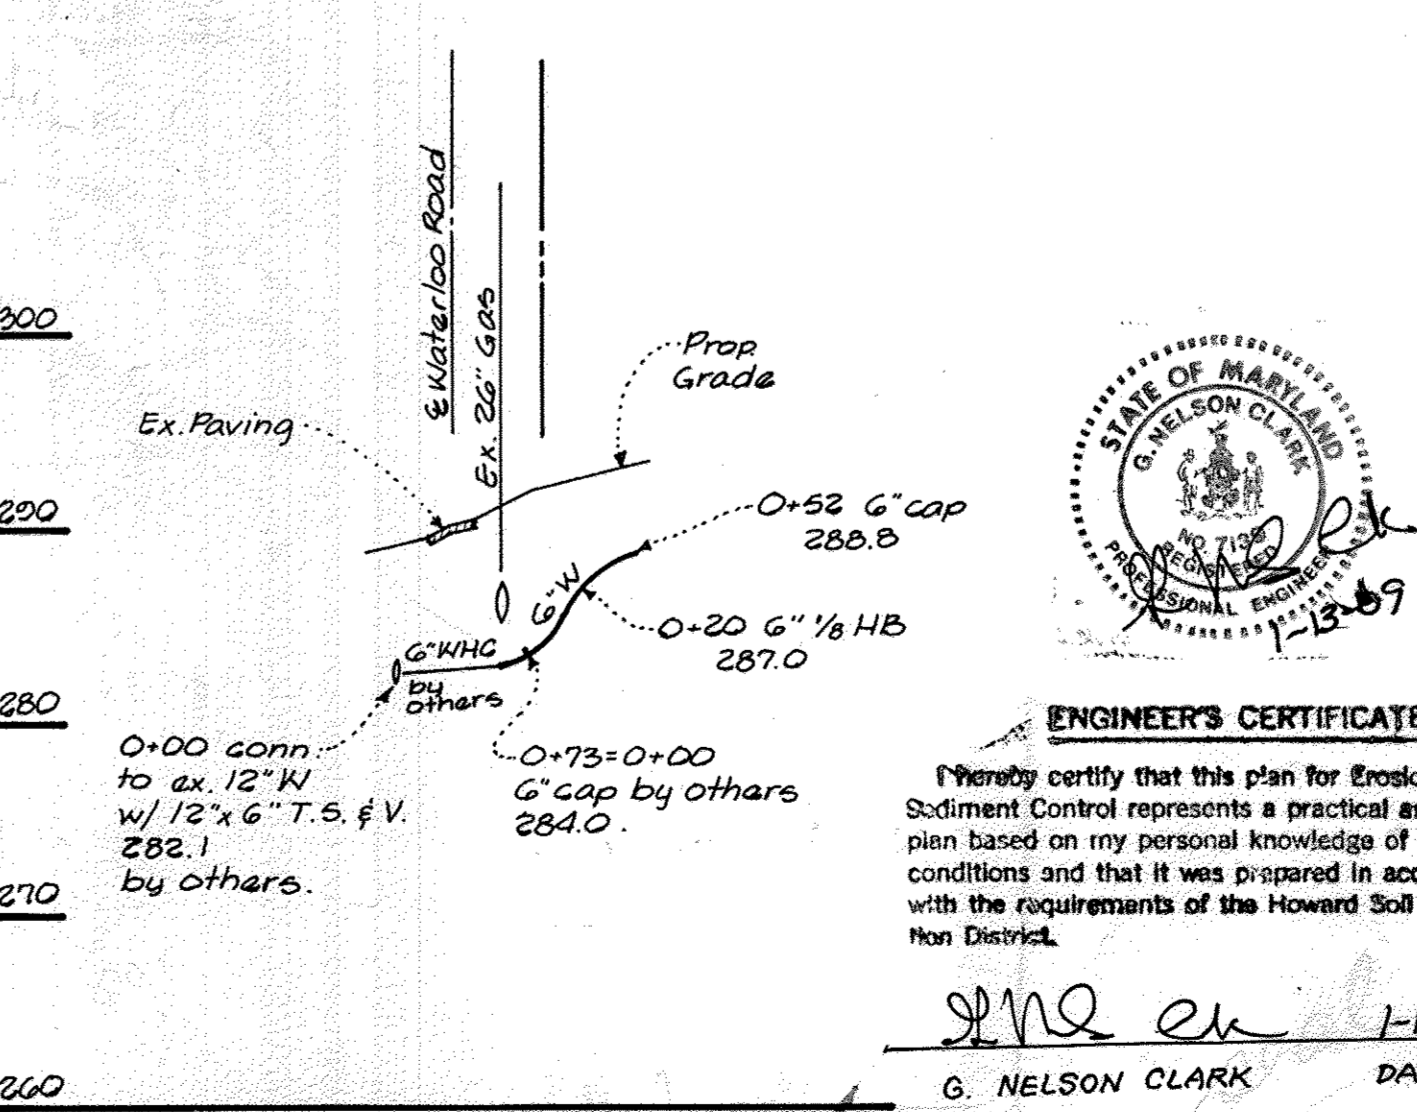 300
290
280
270
260
℄ Waterloo Road
Ex. 26" Gas
Ex. Paving
Prop.
Grade
0+52 6" cap
288.8
6" W
0+20 6" 1/8 HB
287.0
6" WHC
by
others
0+00 conn.
to ex. 12" W
w/ 12" x 6" T.S. & V.
282.1
by others.
0+73=0+00
6" cap by others
284.0.
STATE OF MARYLAND
G. NELSON CLARK
REGISTERED
PROFESSIONAL ENGINEER
ENGINEER'S CERTIFICATE
I hereby certify that this plan for
Sediment Control represents a practical
plan based on my personal knowledge of
conditions and that it was prepared in
with the requirements of the Howard Soil
tion District.
G. NELSON CLARK